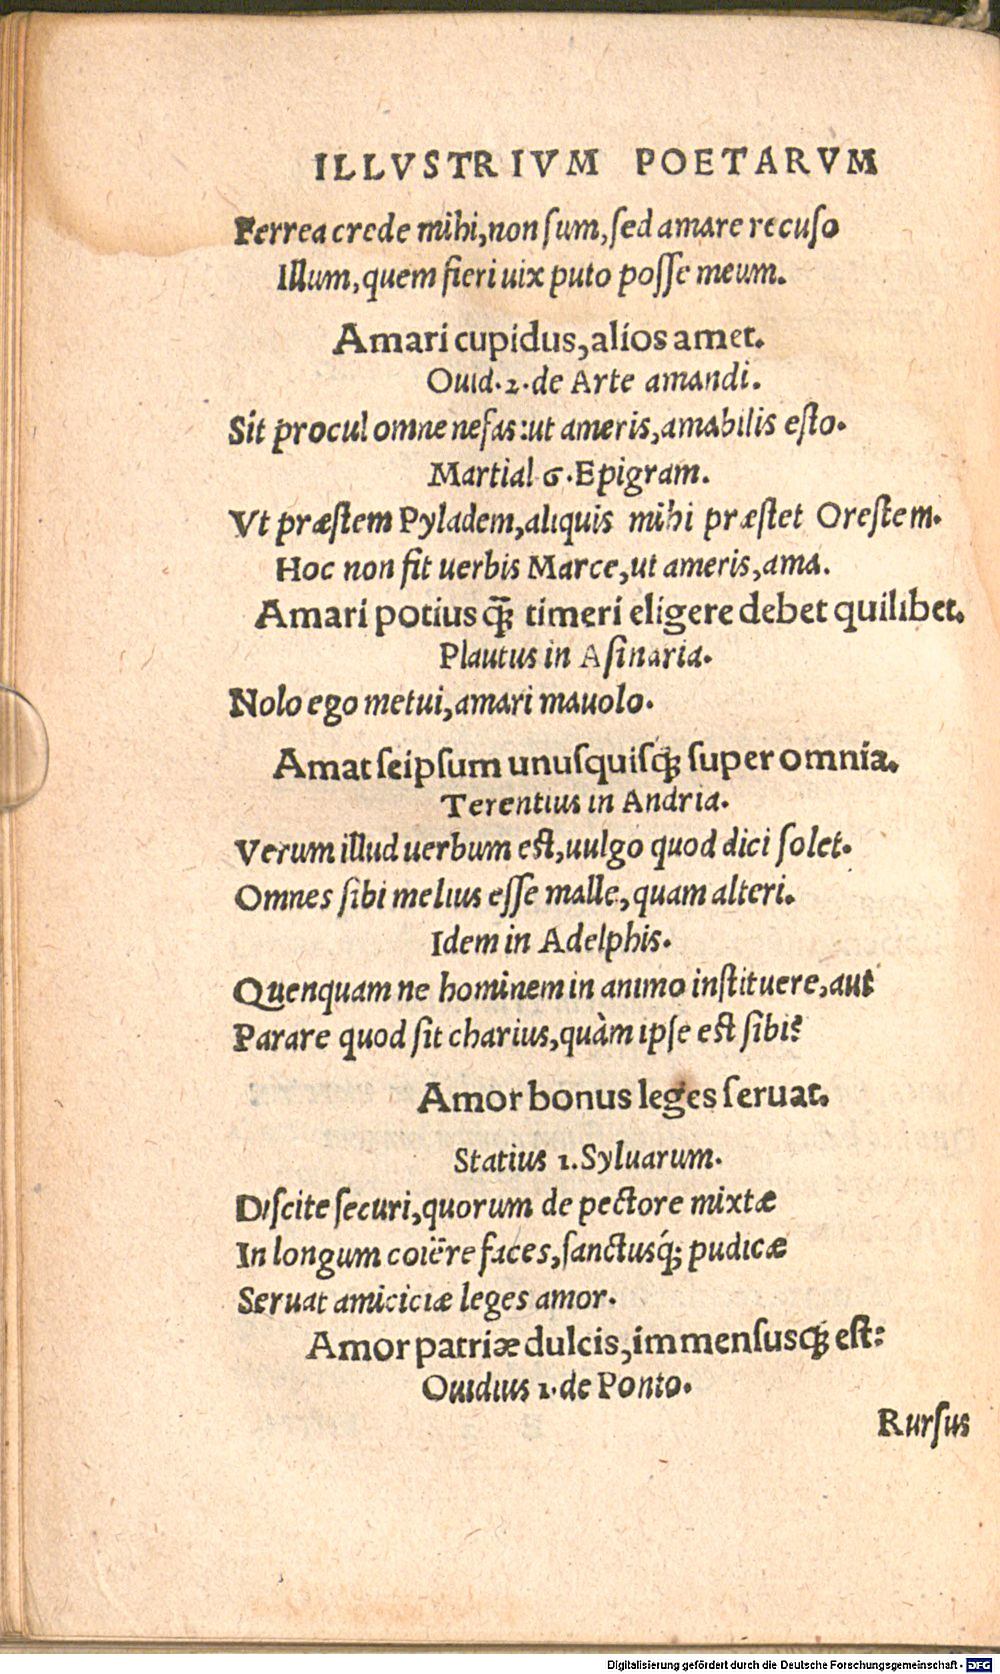 ILLVSTRIVM POETARVM
Ferrea crede mihi, non ſum, ſed amare recuſo
Illum, quem fieri uix puto poſſe meum.
Amari cupidus, alios amet.
Ouid. 2. de Arte amandi.
Sit procul omne nefas: ut ameris, amabilis eſto.
Martial 6. Epigram.
Vt præſtem Pyladem, aliquis mihi præſtet Oreſtem.
Hoc non fit uerbis Marce, ut ameris, ama.
Amari potius q̃ꝫ timeri eligere debet quilibet.
Plautus in Aſinaria.
Nolo ego metui, amari mauolo.
Amat ſeipſum unuſquiſqꝫ ſuper omnia.
Terentius in Andria.
Verum illud uerbum eſt, uulgo quod dici ſolet.
Omnes ſibi melius eſſe malle, quam alteri.
Idem in Adelphis.
Quenquam ne hominem in animo inſtituere, aut
Parare quod ſit charius, quàm ipſe eſt ſibi?
Amor bonus leges ſeruat.
Statius 1. Syluarum.
Diſcite ſecuri, quorum de pectore mixtæ
In longum coiëre faces, ſanctusq́ꝫ pudicæ
Seruat amiciciæ leges amor.
Amor patriæ dulcis, immenſusqꝫ eſt:
Ouidius 1. de Ponto.
Rurſus
Digitalisierung gefördert durch die Deutsche Forschungsgemeinschaft - DFG